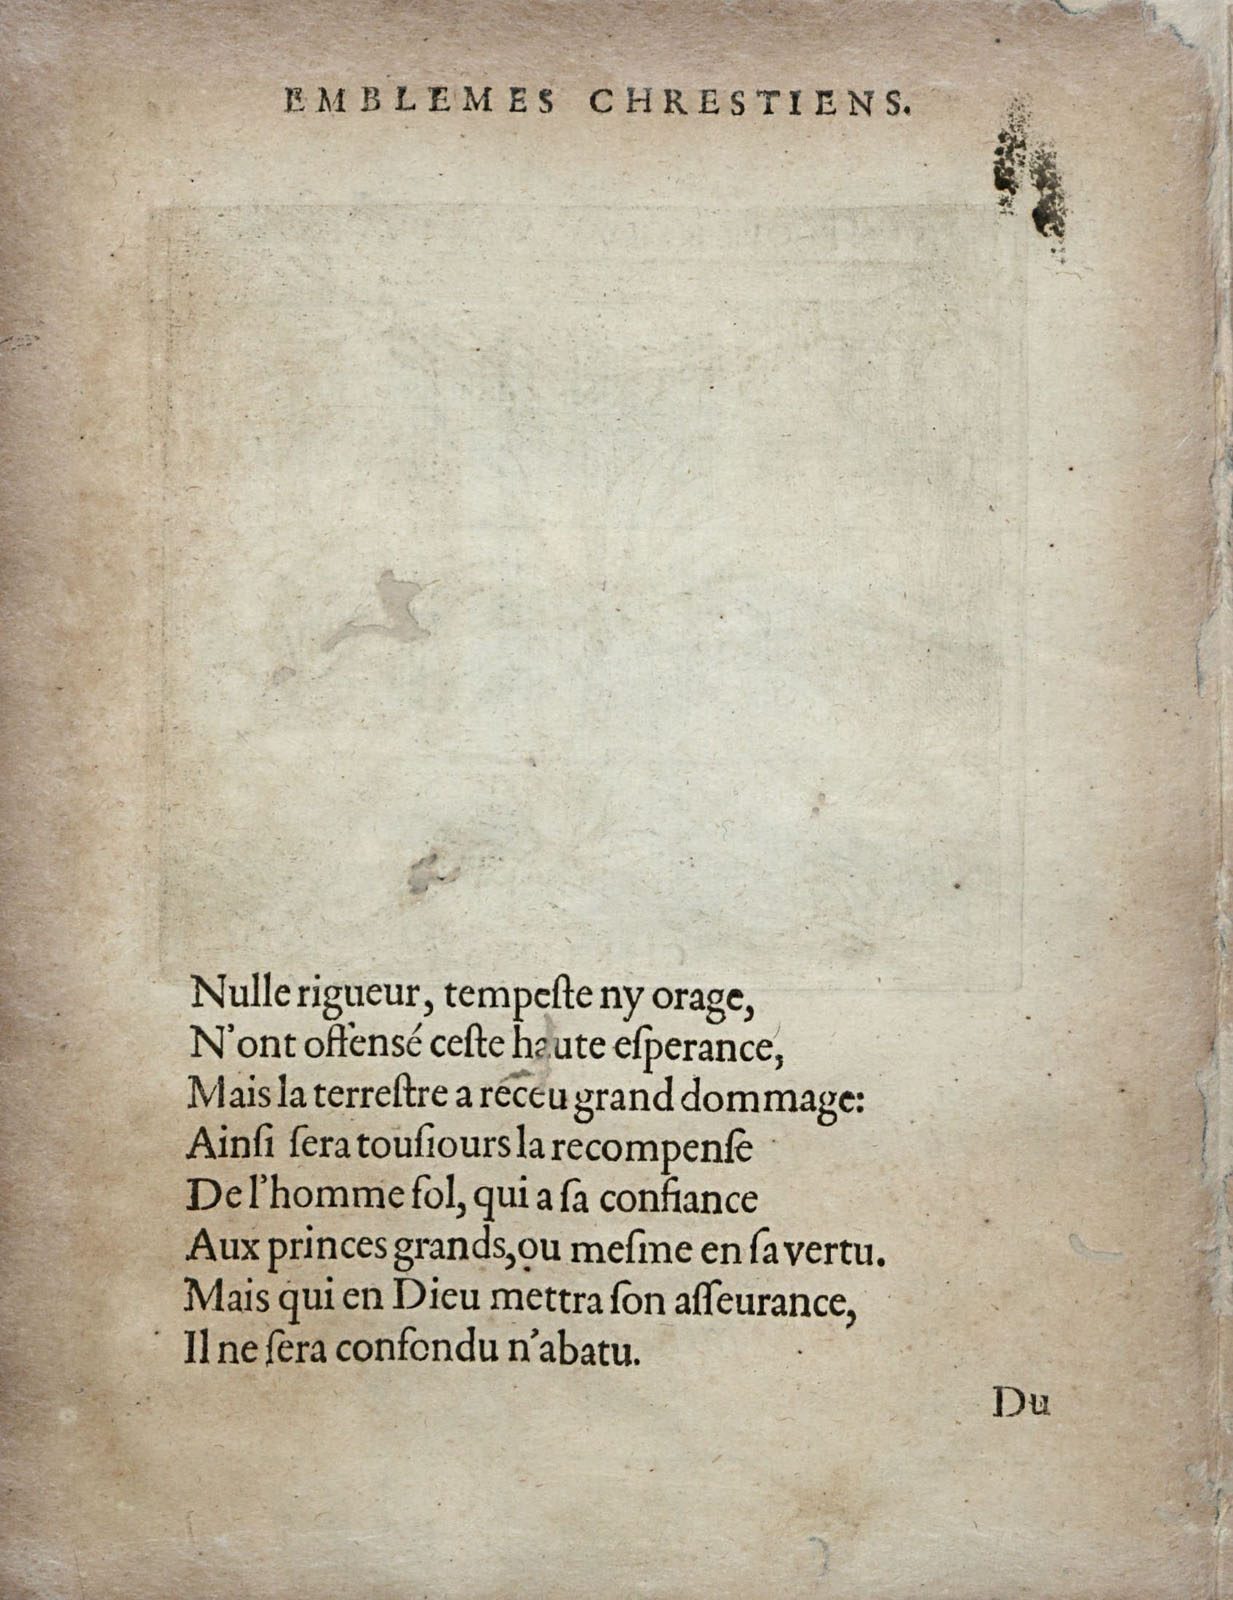 EMBLEMES CHRESTIENS.
Nulle rigueur, tempeſte ny orage,
N'ont offensé ceſte haute eſperance,
Mais la terreſtre a receu grand dommage:
Ainſi ſera touſiours la recompenſe
De l'homme fol, qui a ſa confiance
Aux princes grands, ou meſme en ſa vertu.
Mais qui en Dieu mettra ſon aſſeurance,
Il ne ſera confondu n'abatu.
Du